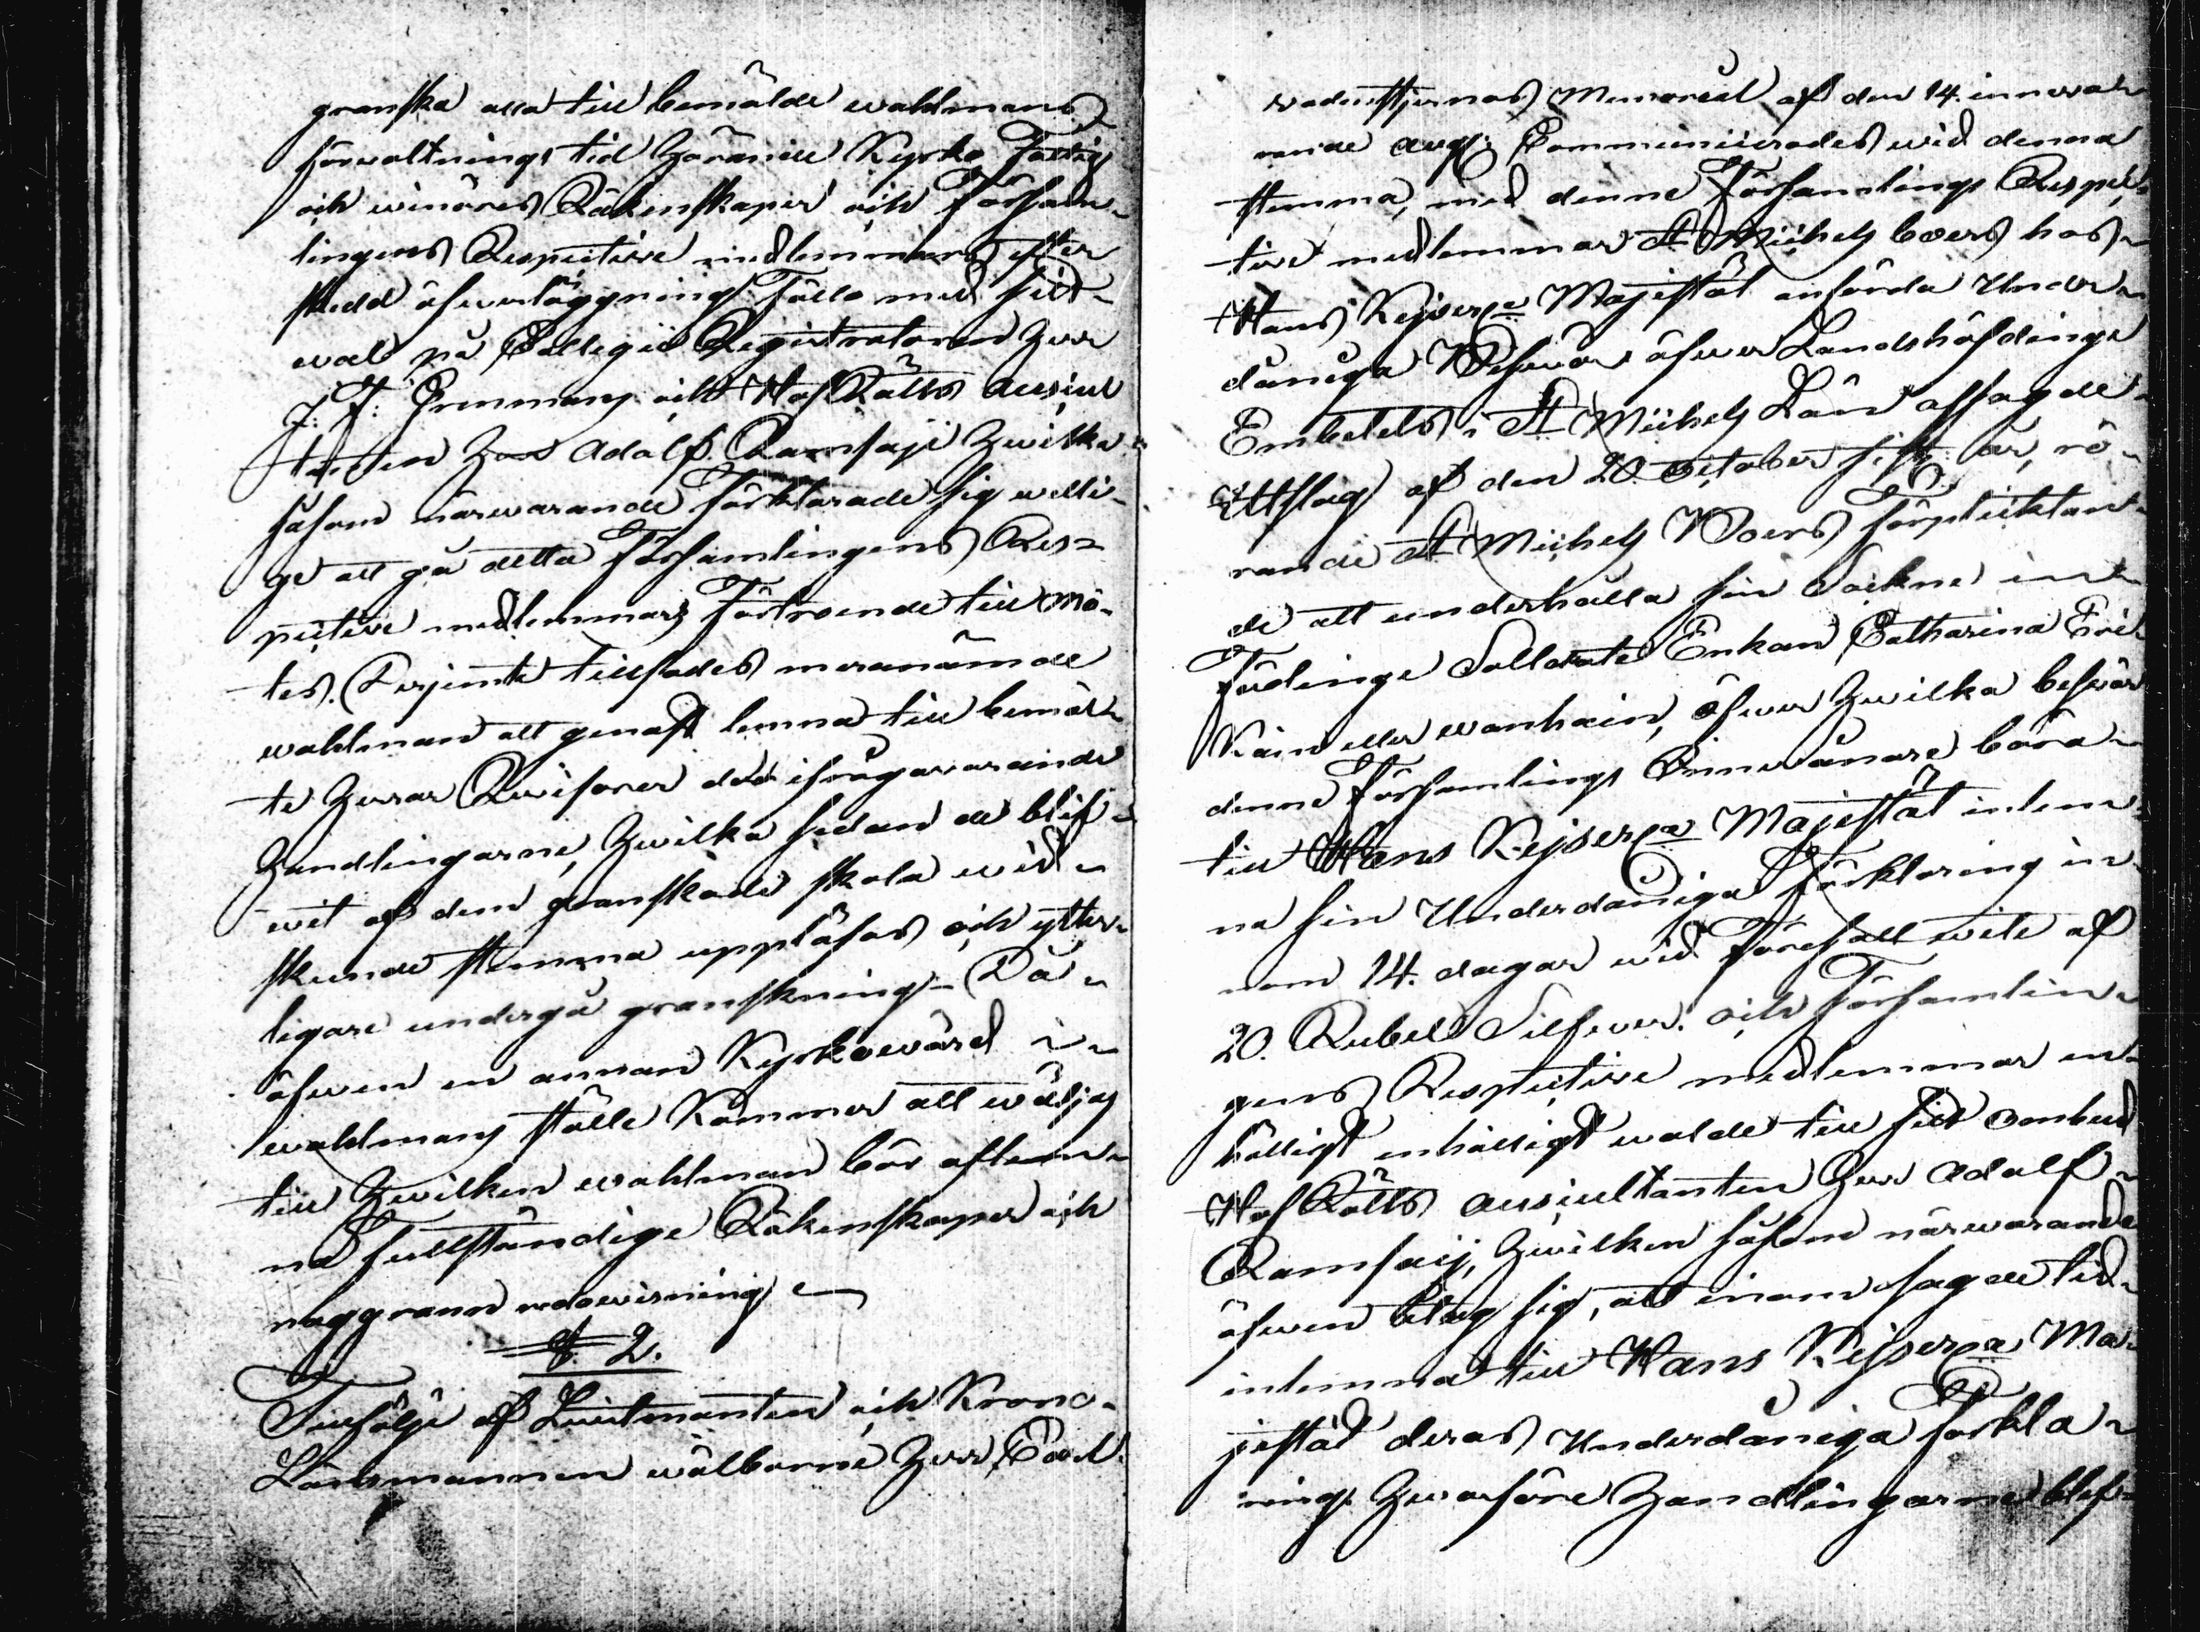 granska alla till bemälde wahlmans
förwaltnings tid hörande Kyrko Fattig
och winöres Räkenskaper och Försam-
lingens Respective medlemmars efter
skedd öfwerläggning Föllo med sitt
wal på Collegii Registratoren Herr
J. F. Grenman och Hof Rätts Auscul
tanten Herr Adolf Ramsaji hwilka
såsom närwarande Förklarade sig willi-
ge att på detta Församlingens Res-
pective medlemmars Förtroende till mö-
tes. Derjemte tillsades meranämde
wahlman att genast lemna till bemäl-
te Herrar Revisorer de ifrågawarande
Handlingarne, hwilka sedan de blif-
wit af dem granskade skola wid
skeende stemma uppläsas och ytter-
ligare undergå granskning. Då
äfwen en annan Kyrkowärd i
wahlmans ställe Kommer att wäljas
till hwilken wahlman bör aflem-
na fullständige Räkenskaper och
noggrann redowisning
§. 2.
Tillfölje af Lieutnanten och Krono-
Länsmannen wälborne Herr Carl
wadenstjernas Memorial af den 14. innewa-
rande Aug: Communicerades wid denna
stemma, med denne Församlings Respec-
tive medlemmar St Michels boers hos
Hans Kejserla Majestät anförda Under-
dåniga Beswär öfwer Landshöfdinge
Embetets i St Michels Län afsagde
Utslag af den 20 October sistl. år, rö-
rande St Michels Boers förplicktan-
de att underhålla sin Sockne in
Födinge Soldate Enkan Catharina Eri-
Kain eller wanhain, öfwer hwilka beswär
denne Församlings Innewånare böra
till Hans Kejserla Majestät inlem-
na sin Underdåniga Förklaring in-
nom 14. dagar wid Förefalt wite af
20. Rubel Silfwer. och Församlin-
gens Respective medlemmar en-
hälligt enhälligt walde till sitt ombud
Hof Rätts Auscultanten Herr Adolf
Ramsaij, hwilken såsom närwarande
äfwen åtog sig, att inom sagde tid
inlemna till Hans Kejserla Ma-
jestät deras Underdåniga förkla-
ring. Hwarföre Handlingarne blef-